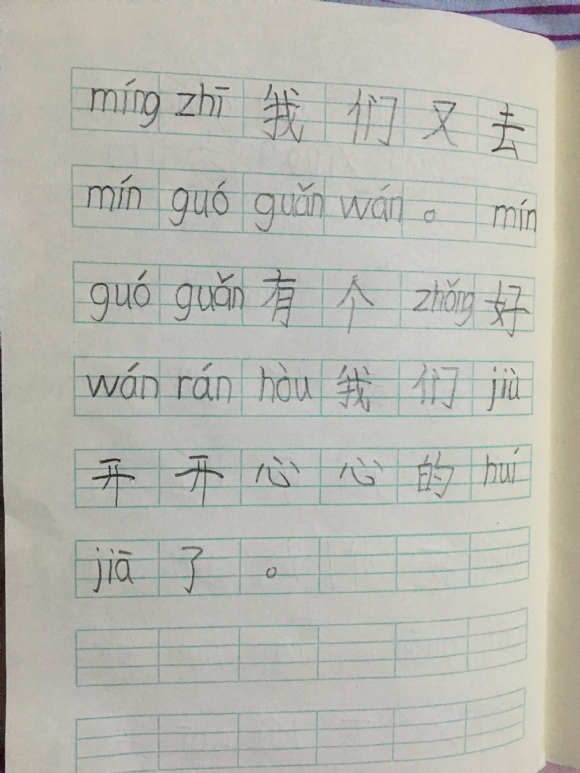 míng zhī 我 们 又 去
mín guó guǎn wán 。 mín
guó guǎn 有 个 zhǒng 好
wán rán hòu 我 们 jiù
开 开 心 心 的 huí
jiā 了 。